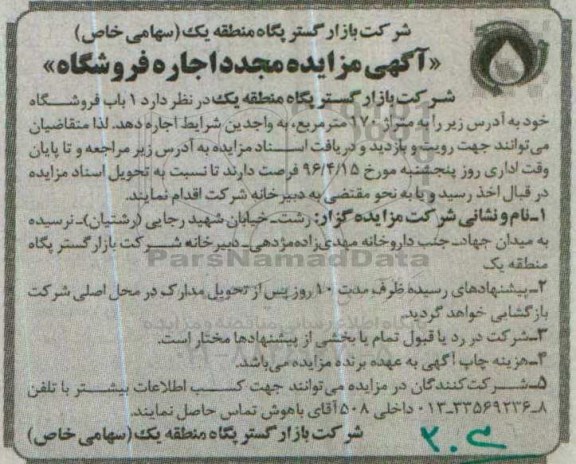 شرکت بازار گستر پگاه منطقه یک (سهامی خاص)
«آگهی مزایده مجدد اجاره فروشگاه»
شرکت بازار گستر پگاه منطقه یک در نظر دارد ۱ باب فروشگاه
خود به آدرس زیر را به متراژ ۱۷۰ مترمربع، به واجدین شرایط اجاره دهد. لذا متقاضیان
می‌توانند جهت رویت و بازدید و دریافت اسناد مزایده به آدرس زیر مراجعه و تا پایان
وقت اداری روز پنجشنبه مورخ ۹۶/۴/۱۵ فرصت دارند تا نسبت به تحویل اسناد مزایده
در قبال اخذ رسید و یا به نحو مقتضی به دبیرخانه شرکت اقدام نمایند.
۱-نام و نشانی شرکت مزایده گزار: رشت-خیابان شهید رجایی (رشتیان)-نرسیده
به میدان جهاد-جنب داروخانه مهدی‌زاده‌مژدهی-دبیرخانه شرکت بازار گستر پگاه
منطقه یک
ParsNamadData
۲-پیشنهادهای رسیده ظرف مدت ۱۰ روز پس از تحویل مدارک در محل اصلی شرکت
بازگشایی خواهد گردید.
۳-شرکت در رد یا قبول تمام یا بخشی از پیشنهادها مختار است.
۴-هزینه چاپ آگهی به عهده برنده مزایده می‌باشد.
۵-شرکت‌کنندگان در مزایده می‌توانند جهت کسب اطلاعات بیشتر با تلفن
۸-۳۳۵۶۹۲۳۶-۰۱۳ داخلی ۵۰۸ آقای باهوش تماس حاصل نمایند.
شرکت بازار گستر پگاه منطقه یک (سهامی خاص)